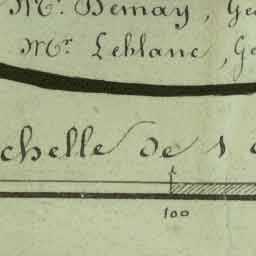 Mr. Demay, Ge
Mr. Leblanc, Ge
chelle de 1 a
100